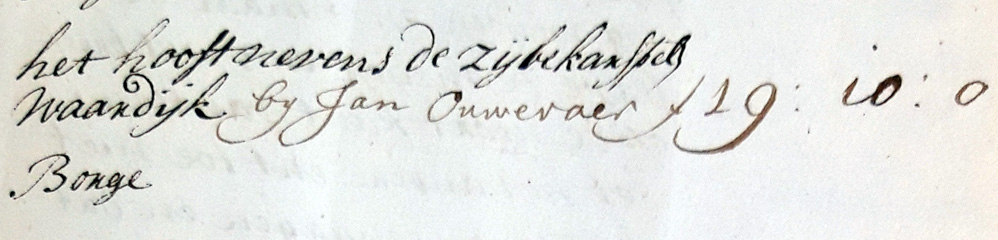 het hooft nevens de zijbekanssels
waardijk by Jan Ouweraer f 19 : 10 : 0
Bonge